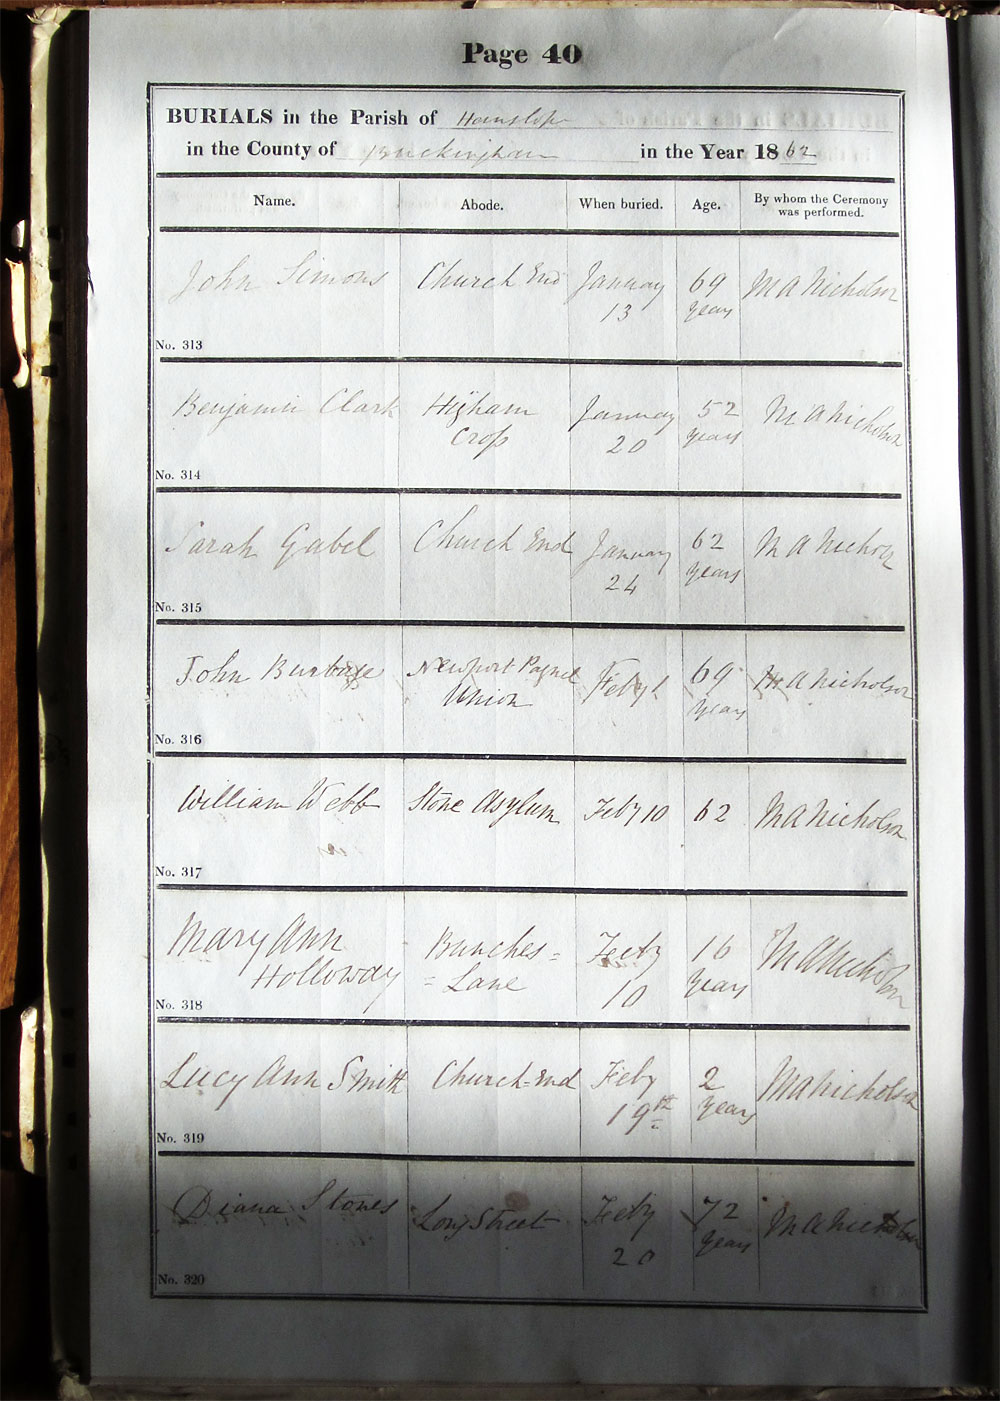 Page 40
BURIALS in the Parish of Hanslope
in the County of Buckingham in the Year 1862
Name. Abode. When buried. Age. By whom the Ceremony
was performed.
John Simons Church End January 69 M A Nicholson
13 years
No. 313
Benjamin Clark Higham January 52 M A Nicholson
Cross 20 years
No. 314
Sarah Gabel Church End January 62 M A Nichol
24 years
No. 315
John Burbage Newport Pagnel Feby 1 69 M A Nicholson
Union years
No. 316
William Webb Stone Asylum Feby 10 62 M A Nicholson
No. 317
Mary Ann Bunches = Feby 16 M A Nicholson
Holloway = Lane 10 years
No. 318
Lucy Ann Smith Church-End Feby 2 M A Nicholson
19th years
No. 319
Diana Stones Long Street Feby 72 M A Nicholson
20 years
No. 320